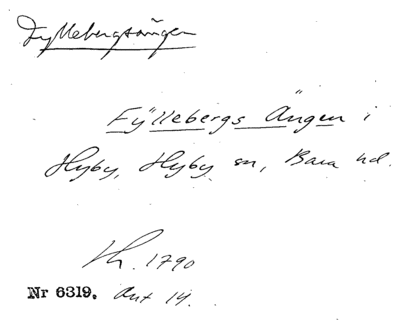 Fyllebergsängen
Fÿllebergs Ängen i
Hyby, Hyby sn, Bara hd.
Lh. 1790
Nr 6319. Akt 14.